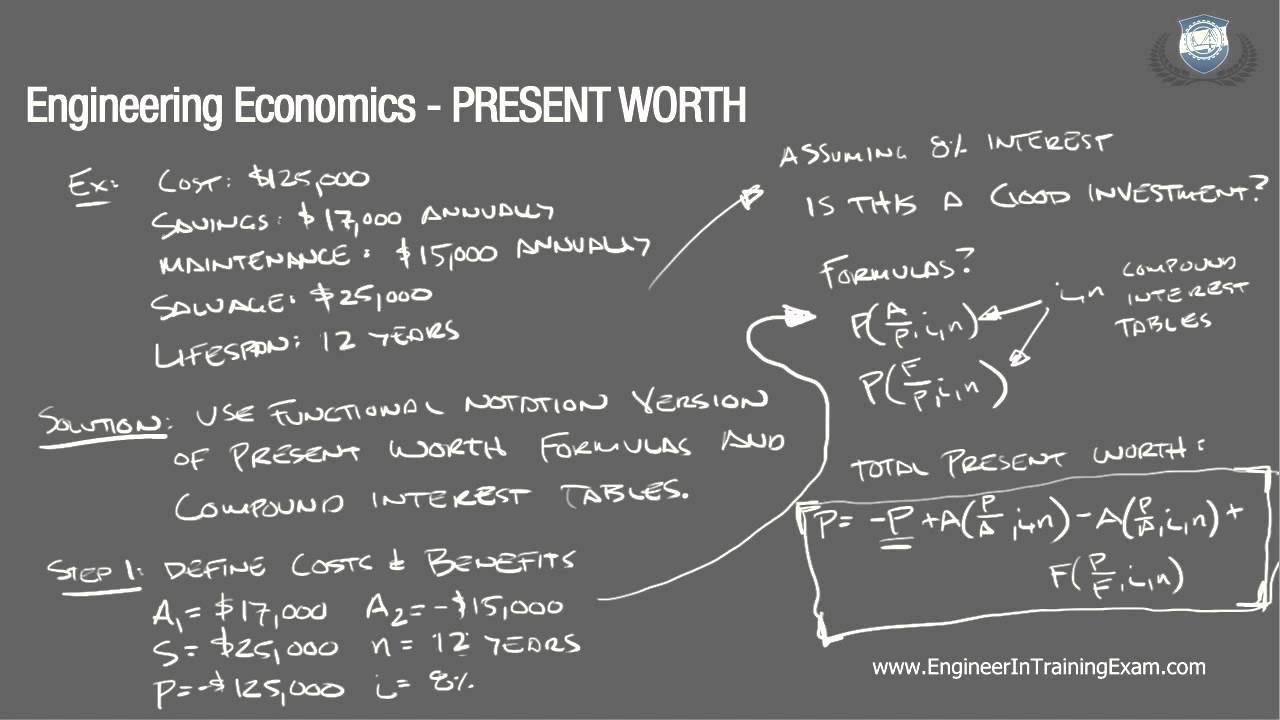 Engineering Economics - PRESENT WORTH
Ex: COST: $125,000
SAVINGS: $17,000 ANNUALLY
MAINTENANCE: $15,000 ANNUALLY
SALVAGE: $25,000
LIFESPAN: 12 YEARS
SOLUTION: USE FUNCTIONAL NOTATION VERSION
OF PRESENT WORTH FORMULAS AND
COMPOUND INTEREST TABLES.
STEP 1: DEFINE COSTS & BENEFITS
A₁ = $17,000 A₂ = -$15,000
S = $25,000 n = 12 YEARS
P = -$125,000 i = 8%
ASSUMING 8% INTEREST
IS THIS A GOOD INVESTMENT?
FORMULAS?
P(A/P, i, n)
P(F/P, i, n)
i, n
COMPOUND
INTEREST
TABLES
TOTAL PRESENT WORTH:
P = -P + A(P/A, i, n) - A(P/A, i, n) +
F(P/F, i, n)
www.EngineerInTrainingExam.com